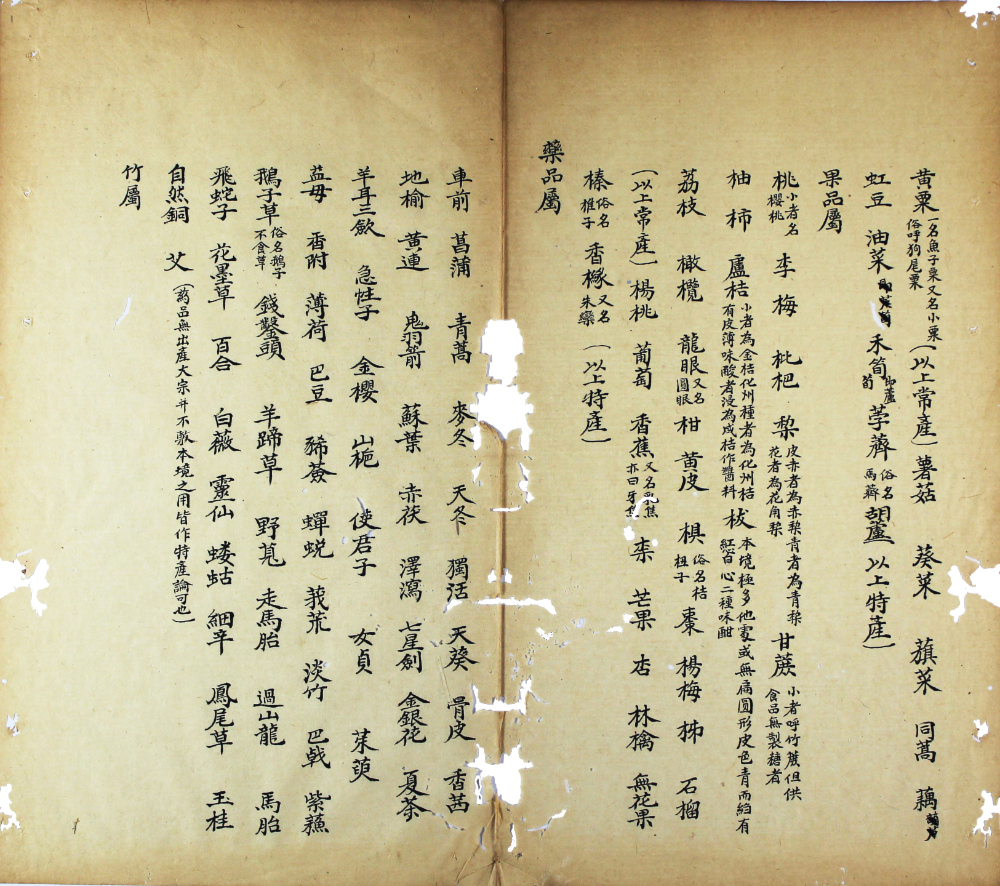 黃粟一名魚子粟又名小粟俗呼狗尾粟（以上常産）薯菇 葵菜 蕻菜 同蒿 藕
虹豆 油菜 禾筍 荸薺俗名馬薺 胡蘆 以上特産）
果品屬
桃小者名櫻桃 李 梅 枇杷 梨皮赤者為赤梨青者為青梨花者為花角梨 甘蔗小者呼竹蔗但供食品無製糖者
柚 柿 盧桔小者為金桔化州種者為化州桔有皮薄味酸者浸為咸桔作醬料 柭本境極多他處或無扁圓形皮色青而約有紅白心二種味酣
荔枝 橄欖 龍眼又名圓眼 柑 黃皮 棋俗名桔枉子 棗 楊梅 柹 石榴
（以上常産）楊桃 葡萄 香蕉又名乳焦亦曰牙焦 柰 芒果 杏 林檎 無花果
榛俗名椎子 香櫞又名朱欒（以上特産）
藥品屬
車前 菖蒲 青蒿 麥冬 天冬 獨活 天葵 骨皮 香茜
地榆 黃連 鬼羽箭 蘇葉 赤茯 澤瀉 七星劍 金銀花 夏茶
羊耳三歛 急性子 金櫻 山栀 使君子 女貞 茱萸
益母 香附 薄荷 巴豆 豨薟 蟬蛻 莪荒 淡竹 巴戟 紫蘇
鵝子草俗名鵝子不食草 錢鑿頭 羊蹄草 野莧 走馬胎 過山龍 馬胎
飛蛇子 花墨草 百合 白薇 靈仙 螻蛄 細辛 鳳尾草 玉桂
自然銅 艾（葯品無出産大宗并不敷本境之用皆作特産論可也）
竹屬